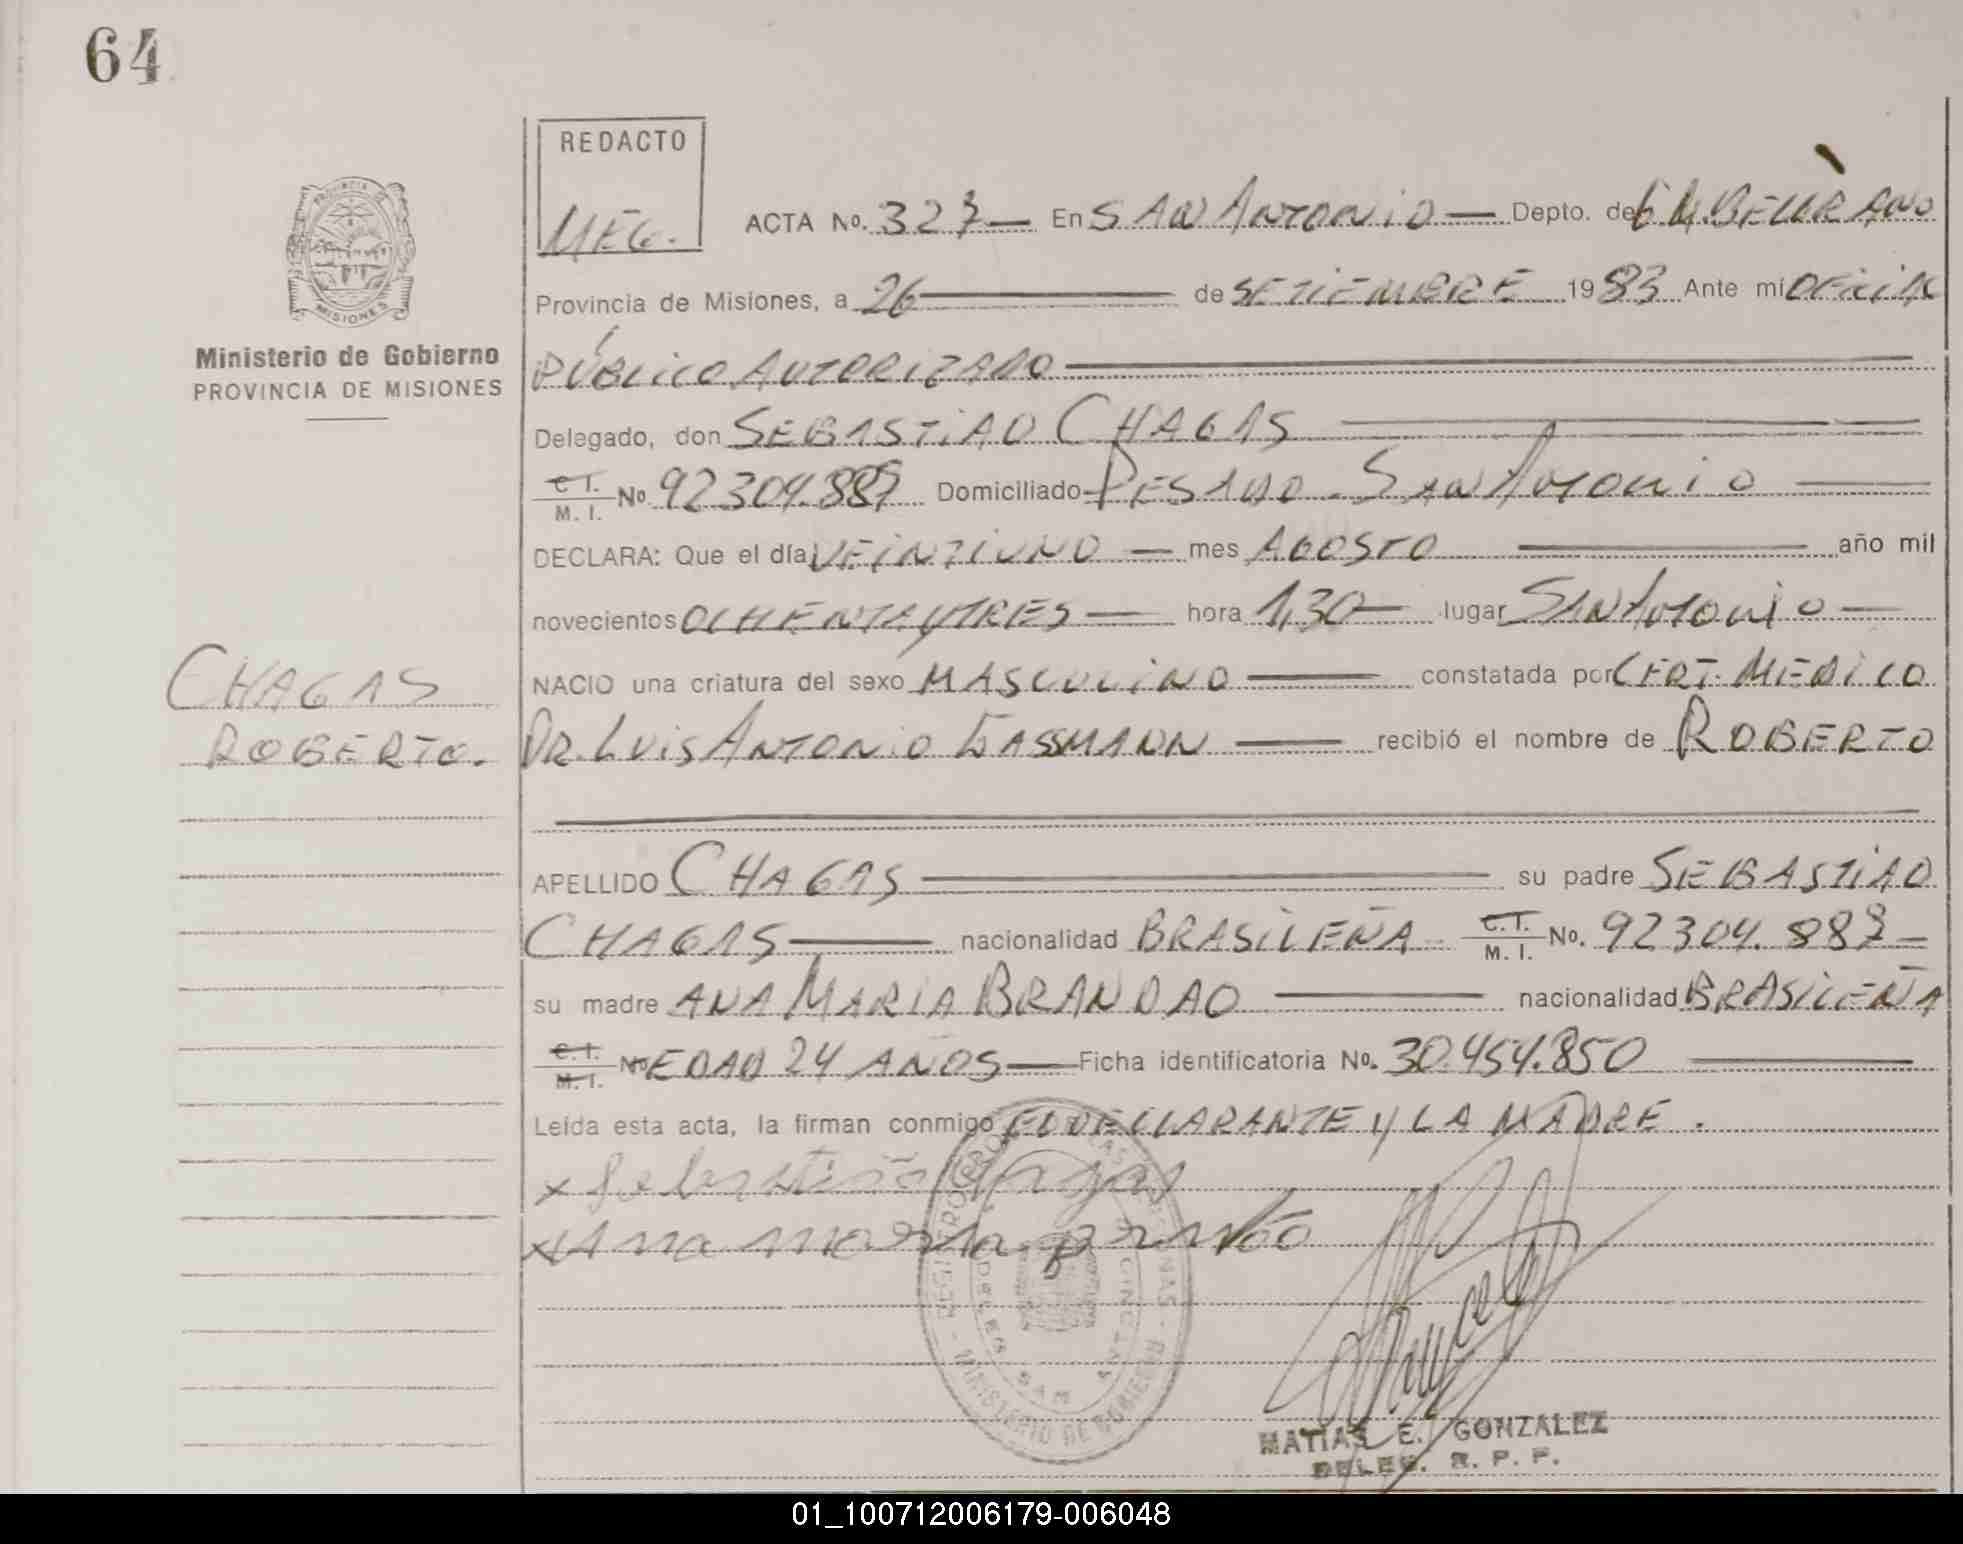 64
REDACTO
MEG.
ACTA No. 327 — En SAN ANTONIO — Depto. de G M. BELGRANO
Provincia de Misiones, a 26 — de SETIEMBRE 1983 Ante mí OFICIAL
PÚBLICO AUTORIZADO
Delegado, don SEBASTIAO CHAGAS
C.I. / M. I. No. 92.304.887 Domiciliado PESADO - SAN ANTONIO
DECLARA: Que el día VEINTIUNO — mes AGOSTO — año mil
novecientos OCHENTA Y TRES — hora 1,30 — lugar SAN ANTONIO —
NACIO una criatura del sexo MASCULINO — constatada por CERT. MEDICO
DR. LUIS ANTONIO GASSMANN — recibió el nombre de ROBERTO
APELLIDO CHAGAS — su padre SEBASTIAO
CHAGAS — nacionalidad BRASILEÑA C.I. / M. I. No. 92304.887 —
su madre ANA MARIA BRANDAO — nacionalidad BRASILEÑA
C.I. / M. I. No EDAD 24 AÑOS — Ficha identificatoria No. 30.454.850
Leída esta acta, la firman conmigo EL DECLARANTE Y LA MADRE.
x Sebastião
x Ana maria
MATIAS E. GONZALEZ
DELEG. R. P. P.
PROVINCIA DE MISIONES
Ministerio de Gobierno
PROVINCIA DE MISIONES
CHAGAS
ROBERTO.
MINISTERIO DE GOBIERNO
01_100712006179-006048